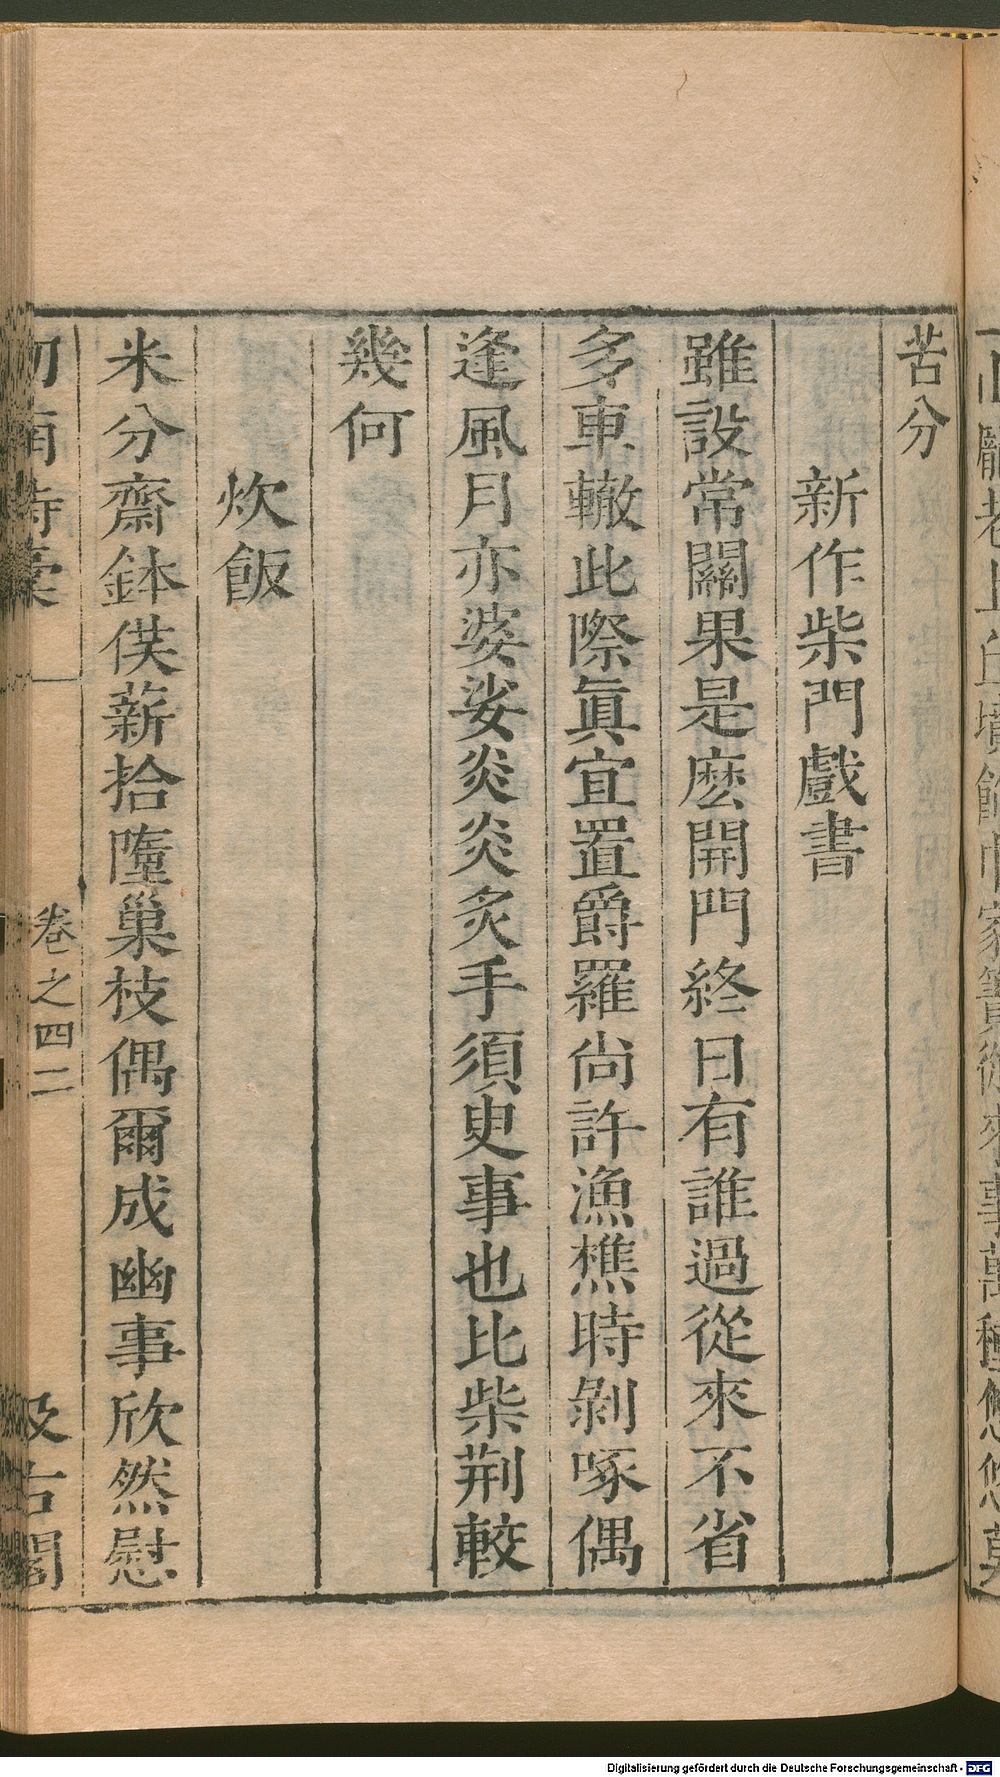 苦分
新作柴門戲書
雖設常關果是麽開門終日有誰過從來不省
多車轍此際眞宜置爵羅尙許漁樵時剝啄偶
逢風月亦婆娑炎炎炙手須臾事也比柴荆較
幾何
炊飯
米分齋鉢僕薪拾墮巢枝偶爾成幽事欣然慰
卷之四二
Digitalisierung gefördert durch die Deutsche Forschungsgemeinschaft - DFG